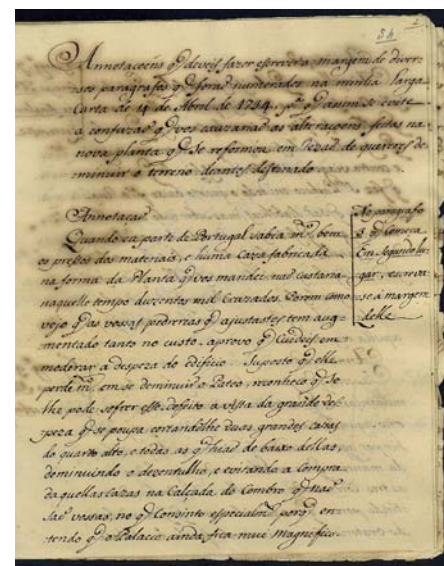 54
Annotaçoens q̃ deveis fazer escrever á margem de diver-
sos paragrafos q̃ foraõ numerados na minha larga
Carta de 4 de Abril de 1734, q̃ assim se evite
a confuzaõ q̃ vos cauzariaõ as alteraçoens, feitas na
nova planta q̃ se reformou em Rezaõ de quereres de-
minuir o terreno deantes destinado.
Annotaçaõ
Quando eu parti de Portugal sabia m.to bem
os preßos dos materiais, e huma Caza fabricada
na forma da Planta q̃ vos mandei, naõ custaria
naquelle tempo duzentos mil Cruzados. Porem como
vejo q̃ as vossas pedrerias q̃ ajustastes tem aug-
mentado tanto no custo, aprovo q̃ Cuideis em
moderar a despeza do edificio. Suposto q̃ elle
perde m.to em se deminuir o Pateo, reconheço q̃ se
lhe pode sofrer este defeito a vista da grande des-
peza q̃ se poupa, cortandolhe duas grandes cazas
do quarto alto, e todas as q̃ hiaõ de baixo dellas,
deminuindo o dezentulho, e evitando a Compra
daquellas Cazas na Calçada do Combro q̃ naõ
saõ vossas, no q̃ Consinto especialm.te porq̃ en-
tendo q̃ o Palacio ainda fica mui magnifico.
No paragrafo
8 q̃ Começa
Em segundo lu-
gar, escreva-
se à margem
delle